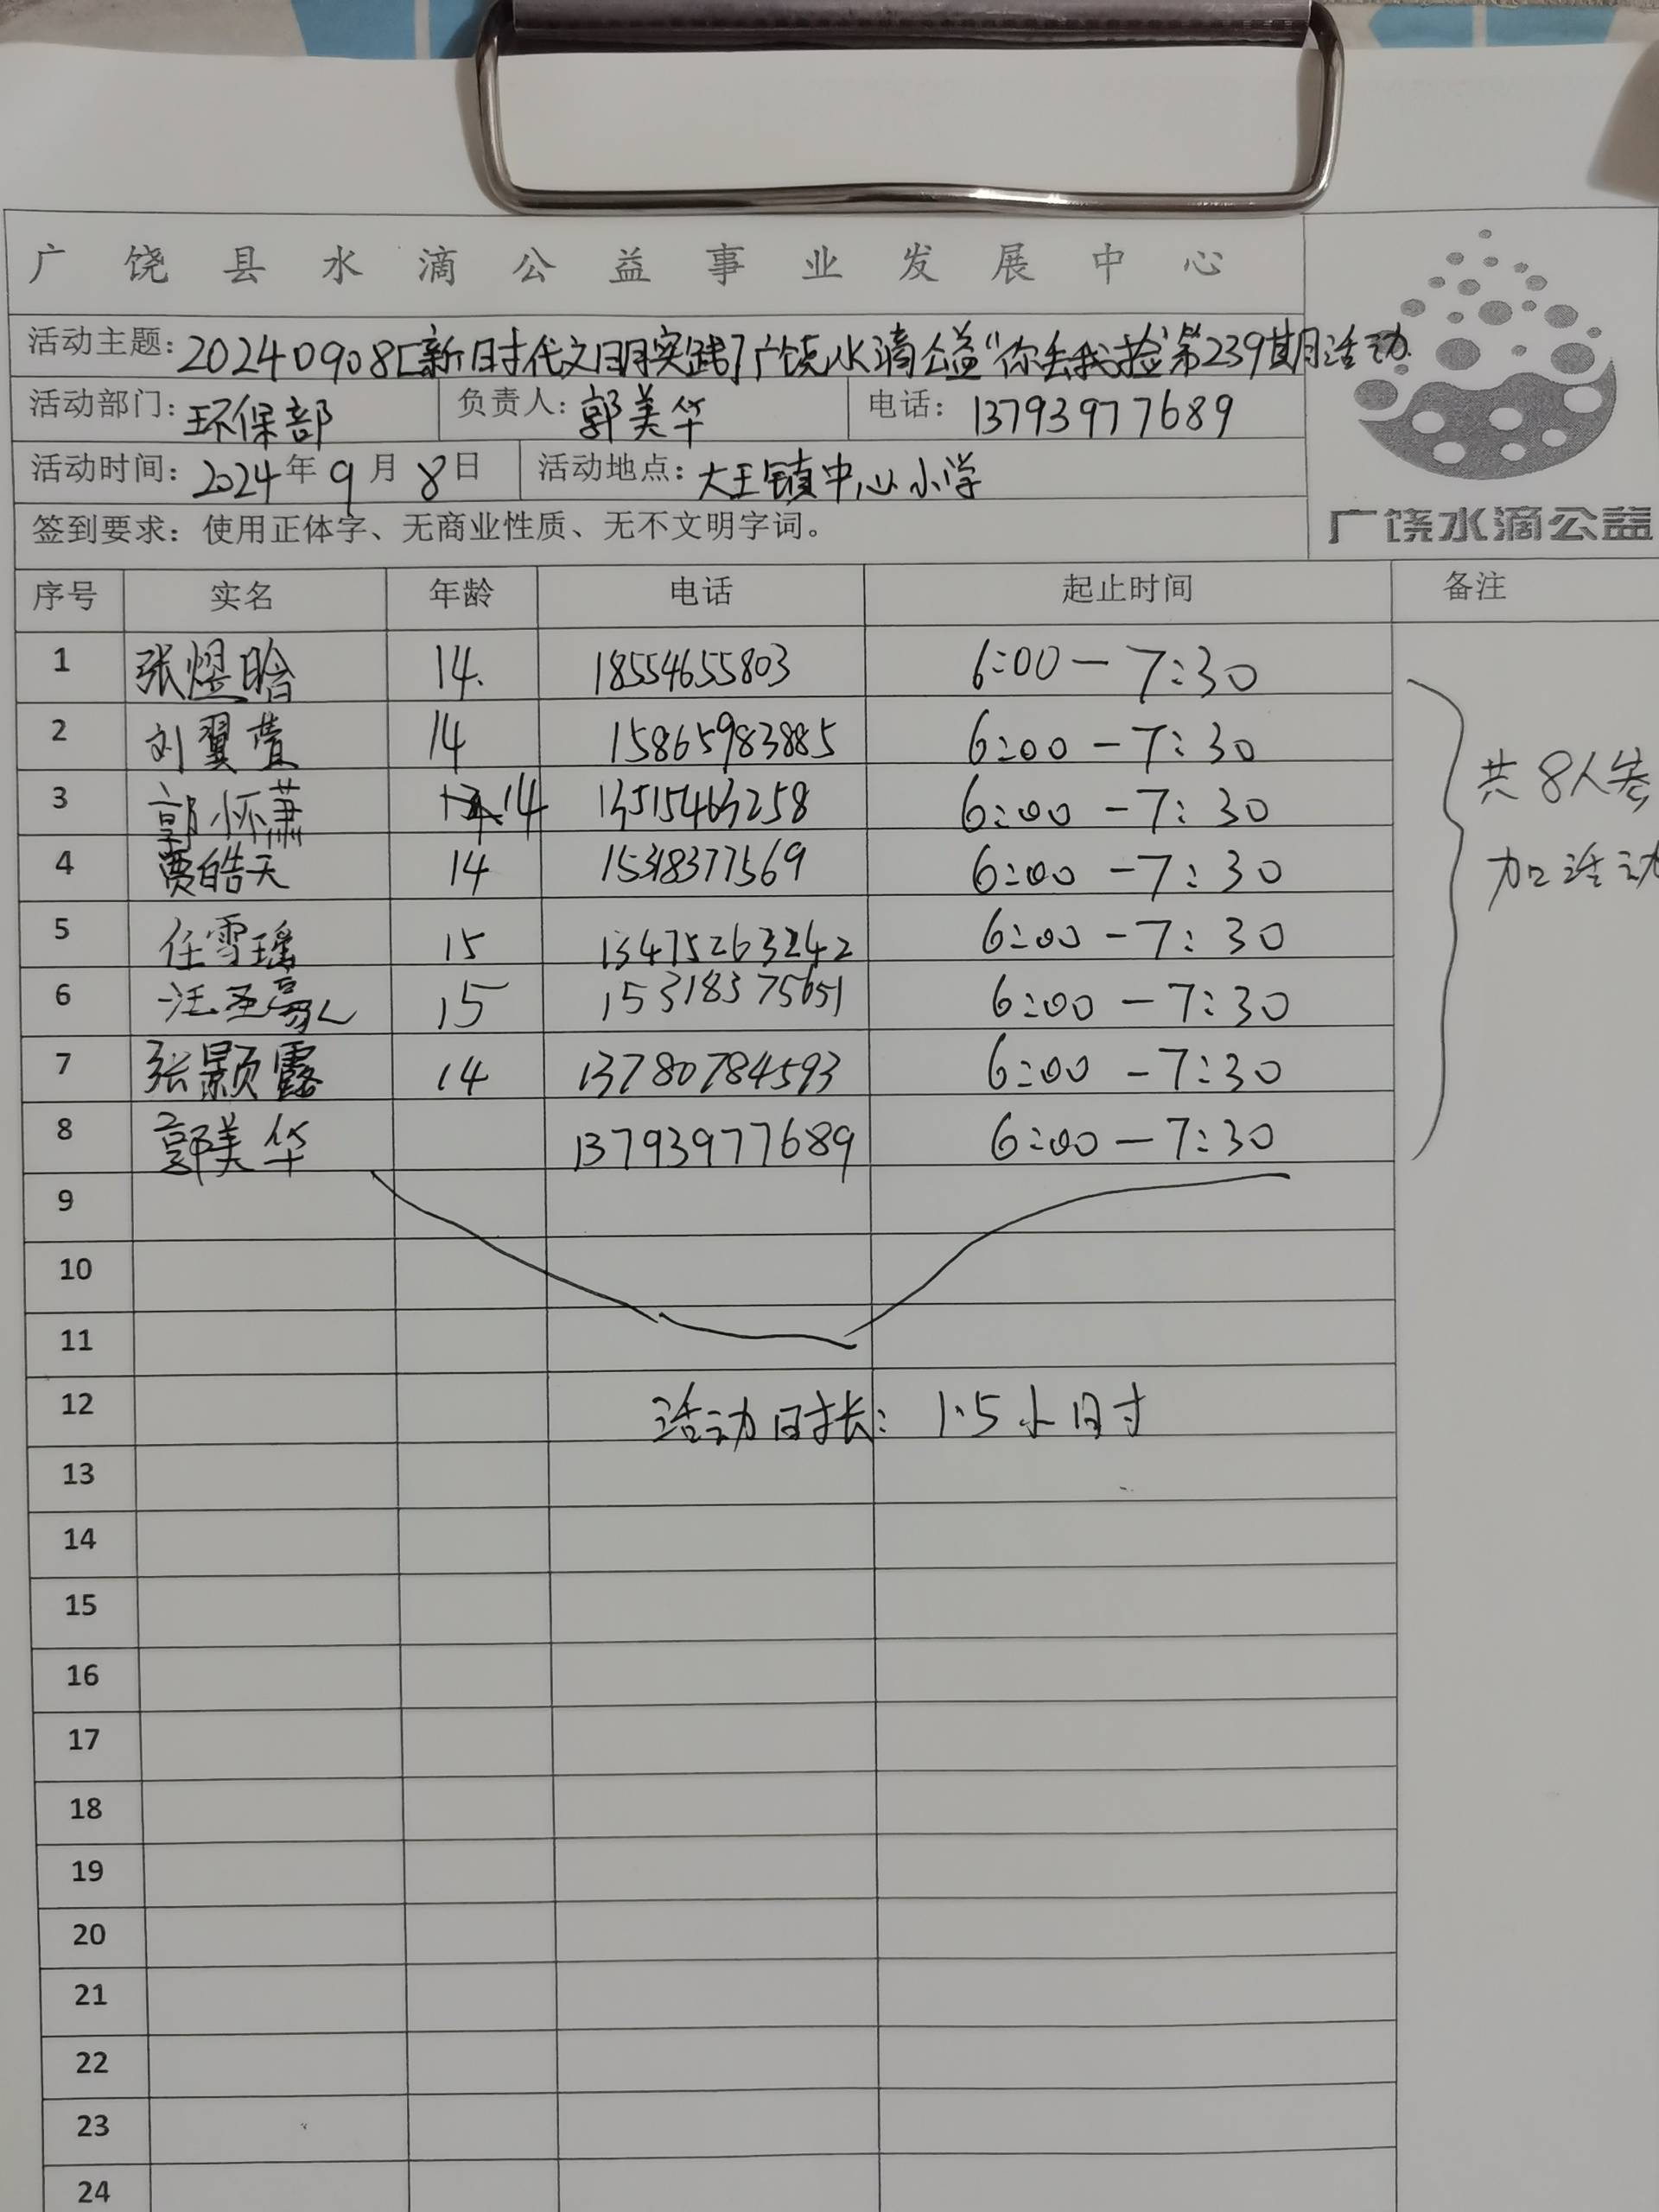 广饶县水滴公益事业发展中心
活动主题：20240908[新时代文明实践]广饶水滴公益"你丢我捡"第239期活动
活动部门：环保部 负责人：郭美华 电话：13793977689
活动时间：2024年9月8日 活动地点：大王镇中心小学
签到要求：使用正体字、无商业性质、无不文明字词。
广饶水滴公益
序号 实名 年龄 电话 起止时间 备注
1 张煜晗 14. 18554655803 6:00-7:30
2 刘翼萱 14 15865983885 6:00-7:30
3 郭怀萧 14 13515463258 6:00-7:30
共8人参
4 贾皓天 14 15318377569 6:00-7:30
加活动
5 任雪瑶 15 13475263242 6:00-7:30
6 汪 15 15318375651 6:00-7:30
7 张颢露 14 13780784593 6:00-7:30
8 郭美华 13793977689 6:00-7:30
9
10
11
12 活动时长：1.5小时
13
14
15
16
17
18
19
20
21
22
23
24